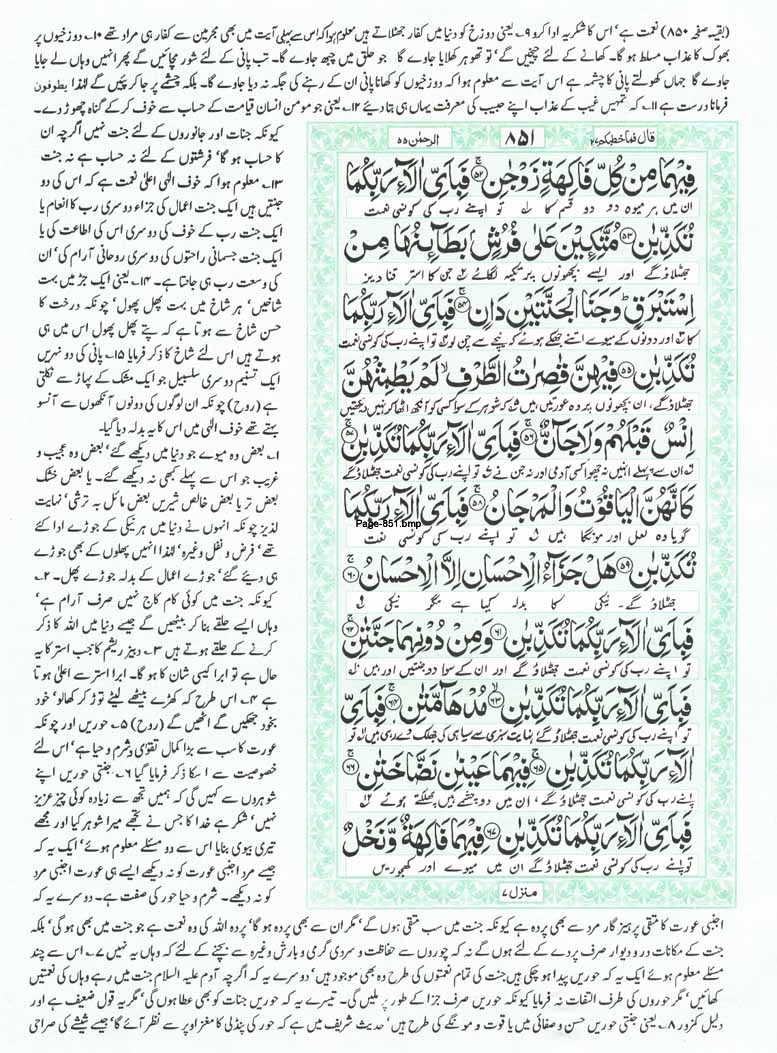 (بقیہ صفحہ ۸۵۰) نعمت ہے' اس کا شکریہ ادا کرو ۹؎ یعنی دوزخ کو دنیا میں کفار جھٹلاتے ہیں معلوم ہوا کہ اس سے پہلی آیت میں بھی مجرمین سے کفار ہی مراد تھے ۱۰؎ دوزخیوں پر
بھوک کا عذاب مسلط ہو گا۔ کھانے کے لئے چیخیں گے' تو تھوہر کھلایا جاوے گا جو حلق میں چبھ جاوے گا۔ تب پانی کے لئے شور مچائیں گے پھر انہیں وہاں لے جایا
جاوے گا جہاں کھولتے پانی کا چشمہ ہے اس آیت سے معلوم ہوا کہ دوزخیوں کو کھانا پانی ان کے رہنے کی جگہ نہ دیا جاوے گا۔ بلکہ چشمے پر جا کر پئیں گے لہٰذا یطوفون
فرمانا درست ہے ۱۱؎ کہ تمہیں غیب کے عذاب اپنے حبیب کی معرفت یہاں ہی بتا دیئے ۱۲؎ یعنی جو مومن انسان قیامت کے حساب سے خوف کر کے گناہ چھوڑ دے۔
کیونکہ جنات اور جانوروں کے لئے جنت نہیں اگرچہ ان
کا حساب ہو گا' فرشتوں کے لئے نہ حساب ہے نہ جنت
۱۳؎ معلوم ہوا کہ خوف الٰہی اعلیٰ نعمت ہے کہ اس کی دو
جنتیں ہیں ایک جنت اعمال کی جزاء دوسری رب کا انعام یا
ایک جنت رب کے خوف کی دوسری اس کی اطاعت کی یا
ایک جنت جسمانی راحتوں کی دوسری روحانی آرام کی' ان
کی وسعت رب ہی جانتا ہے۔ ۱۴؎ یعنی ایک جڑ میں بہت
شاخیں' ہر شاخ میں بہت پھل پھول' چونکہ درخت کا
حسن شاخ سے ہوتا ہے کہ پتے پھل پھول اس میں ہی
ہوتے ہیں اس لئے شاخ کا ذکر فرمایا ۱۵؎ پانی کی دو نہریں
ایک تسنیم دوسری سلسبیل جو ایک مشک کے پہاڑ سے نکلتی
ہے (روح) چونکہ ان لوگوں کی دونوں آنکھوں سے آنسو
بہتے تھے خوف الٰہی میں اس کا یہ بدلہ دیا گیا۔
۱؎ بعض وہ میوے جو دنیا میں دیکھے گئے' بعض وہ عجیب و
غریب جو اس سے پہلے کبھی نہ دیکھے گئے۔ یا بعض خشک
بعض تر یا بعض خالص شیریں بعض مائل بہ ترشی' نہایت
لذیز چونکہ انہوں نے دنیا میں ہر نیکی کے جوڑے ادا کئے
تھے' فرض و نفل وغیرہ' لہٰذا انہیں پھلوں کے بھی جوڑے
ہی دیئے گئے' جوڑے اعمال کے بدلہ جوڑے پھل۔ ۲؎
کیونکہ جنت میں کوئی کام کاج نہیں صرف آرام ہے'
وہاں ایسے حلقے بنا کر بیٹھیں گے جیسے دنیا میں اللہ کا ذکر
کرنے کے حلقے ہوتے ہیں ۳؎ دبیز ریشم کا جب استر کا یہ
حال ہے تو ابرا کیسی شان کا ہو گا۔ ابرا استر سے اعلیٰ ہوتا
ہے ۴؎ اس طرح کہ کھڑے بیٹھے لیٹے توڑ کر کھالو' خود
بخود جھکیں گے اٹھیں گے (روح) ۵؎ حوریں اور چونکہ
عورت کا سب سے بڑا کمال تقویٰ و شرم و حیا ہے' اس لئے
خصوصیت سے اسکا ذکر فرمایا گیا ۶؎ جنتی حوریں اپنے
شوہروں سے کہیں گی کہ ہمیں تجھ سے زیادہ کوئی چیز عزیز
نہیں' شکر ہے خدا کا جس نے تجھے میرا شوہر کیا اور مجھے
تیری بیوی بنایا اس سے دو مسئلے معلوم ہوئے' ایک یہ کہ
جیسے مرد اجنبی عورت کو نہ دیکھے ایسے ہی عورت اجنبی مرد
کو نہ دیکھے۔ شرم و حیا حور کی صفت ہے۔ دوسرے یہ کہ
قال فما خطبکم ۲۷
۸۵۱
الرحمٰن ۵۵
فِيْهِمَا مِنْ كُلِّ فَاكِهَةٍ زَوْجٰنِ ﴿۵۲﴾ فَبِاَيِّ اٰلَآءِ رَبِّكُمَا
ان میں ہر میوہ دو دو قسم کا ۱؎ تو اپنے رب کی کونسی نعمت
تُكَذِّبٰنِ ﴿۵۳﴾ مُتَّكِـِٕيْنَ عَلٰى فُرُشٍۭ بَطَآىِٕنُهَا مِنْ
جھٹلاؤ گے اور ایسے بچھونوں پر تکیہ لگائے ۲؎ جن کا استر قنادیز
اِسْتَبْرَقٍ ؕ وَجَنَا الْجَنَّتَيْنِ دَانٍ ﴿۵۴﴾ فَبِاَيِّ اٰلَآءِ رَبِّكُمَا
کا ۳؎ اور دونوں کے میوے اتنے جھکے ہوئے کہ نیچے سے چن لو ۴؎ تو اپنے رب کی کونسی نعمت
تُكَذِّبٰنِ ﴿۵۵﴾ فِيْهِنَّ قٰصِرٰتُ الطَّرْفِ ۙ لَمْ يَطْمِثْهُنَّ
جھٹلاؤ گے، ان بچھونوں پر وہ عورتیں ہیں ۵؎ کہ شوہر کے سوا کسی کو آنکھ اٹھا کر نہیں دیکھتیں
اِنْسٌ قَبْلَهُمْ وَلَا جَآنٌّ ﴿۵۶﴾ فَبِاَيِّ اٰلَآءِ رَبِّكُمَا تُكَذِّبٰنِ ﴿۵۷﴾
۶؎ ان سے پہلے انہیں نہ چھوا کسی آدمی اور نہ جن نے ۷؎ تو اپنے رب کی کونسی نعمت جھٹلاؤ گے
كَاَنَّهُنَّ الْيَاقُوْتُ وَالْمَرْجَانُ ﴿۵۸﴾ فَبِاَيِّ اٰلَآءِ رَبِّكُمَا
Page-851.bmp
گویا وہ لعل اور مونگا ہیں ۸؎ تو اپنے رب کی کونسی نعمت
تُكَذِّبٰنِ ﴿۵۹﴾ هَلْ جَزَآءُ الْاِحْسَانِ اِلَّا الْاِحْسَانُ ﴿۶۰﴾
جھٹلاؤ گے۔ نیکی کا بدلہ کیا ہے مگر نیکی ۹؎
فَبِاَيِّ اٰلَآءِ رَبِّكُمَا تُكَذِّبٰنِ ﴿۶۱﴾ وَمِنْ دُوْنِهِمَا جَنَّتٰنِ ﴿۶۲﴾
تو اپنے رب کی کونسی نعمت جھٹلاؤ گے اور ان کے سوا دو جنتیں اور ہیں ۱۰؎
فَبِاَيِّ اٰلَآءِ رَبِّكُمَا تُكَذِّبٰنِ ﴿۶۳﴾ مُدْهَآمَّتٰنِ ﴿۶۴﴾ فَبِاَيِّ
تو اپنے رب کی کونسی نعمت جھٹلاؤ گے نہایت سبزی سے سیاہی کی جھلک دے رہی ہیں ۱۱؎ تو
اٰلَآءِ رَبِّكُمَا تُكَذِّبٰنِ ﴿۶۵﴾ فِيْهِمَا عَيْنٰنِ نَضَّاخَتٰنِ ﴿۶۶﴾
اپنے رب کی کونسی نعمت جھٹلاؤ گے، ان میں دو چشمے ہیں چھلکتے ہوئے ۱۲؎
فَبِاَيِّ اٰلَآءِ رَبِّكُمَا تُكَذِّبٰنِ ﴿۶۷﴾ فِيْهِمَا فَاكِهَةٌ وَّنَخْلٌ
تو اپنے رب کی کونسی نعمت جھٹلاؤ گے ان میں میوے اور کھجوریں
منزل ۷
اجنبی عورت کا متقی پرہیز گار مرد سے بھی پردہ ہے کیونکہ جنت میں سب متقی ہوں گے' مگر ان سے بھی پردہ ہو گا' پردہ اللہ کی وہ نعمت ہے جو جنت میں بھی ہو گی' بلکہ
جنت کے مکانات در و دیوار صرف پردے کے لئے ہوں گے نہ کہ چوروں سے حفاظت و سردی گرمی و بارش وغیرہ سے بچنے کے لئے کہ وہاں یہ نہیں ۷؎ اس سے چند
مسئلے معلوم ہوئے ایک یہ کہ حوریں پیدا ہو چکی ہیں جنت کی تمام نعمتوں کی طرح وہ بھی موجود ہیں' دوسرے یہ کہ اگرچہ آدم علیہ السلام جنت میں رہے وہاں کی نعمتیں
کھائیں' مگر حوروں کی طرف التفات نہ فرمایا کیونکہ حوریں صرف جزا کے طور پر ملیں گی۔ تیسرے یہ کہ حوریں جنات کو بھی عطا ہوں گی' مگر یہ قول ضعیف ہے اور
دلیل کمزور ۸؎ یعنی جنتی حوریں حسن و صفائی میں یاقوت و مونگے کی طرح ہیں' حدیث شریف میں ہے کہ حور کی پنڈلی کا مغز اوپر سے نظر آئے گا' جیسے شیشے کی صراحی